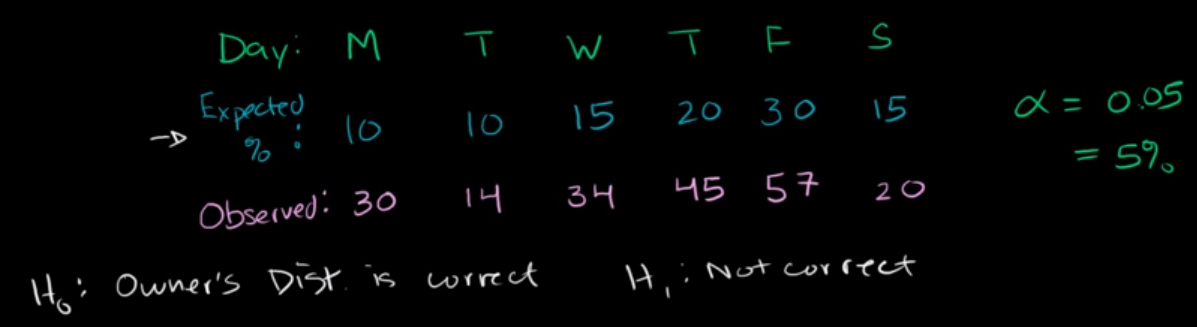 Day: M T W T F S
Expected %: 10 10 15 20 30 15
α = 0.05
= 5%
Observed: 30 14 34 45 57 20
H₀: Owner's Dist. is correct H₁: Not correct